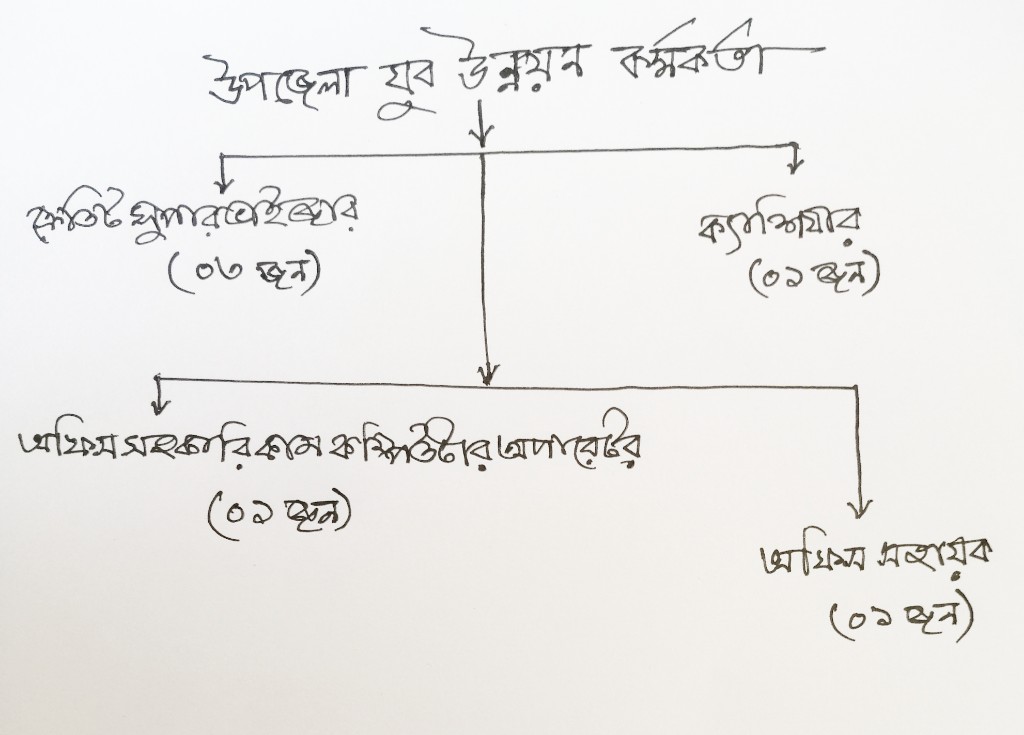 উপজেলা যুব উন্নয়ন কর্মকর্তা
ক্রেডিট সুপারভাইজার
(০৩ জন)
ক্যাশিয়ার
(০১ জন)
অফিস সহকারি কাম কম্পিউটার অপারেটর
(০১ জন)
অফিস সহায়ক
(০১ জন)